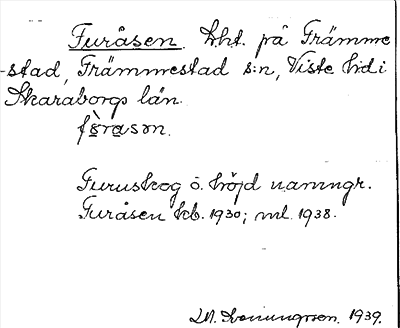 Furåsen. Lht. på Främme
-stad, Främmestad s:n, Viste hd i
Skaraborgs län.
fùrasɷn.
Furuskog o. höjd namngr.
Furåsen kb. 1930; ml. 1938.
1939.